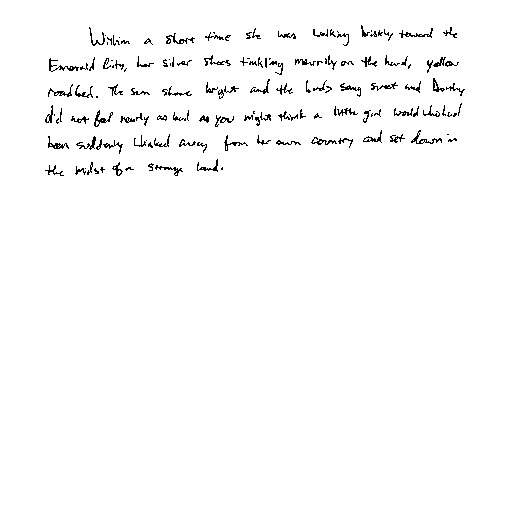 Within a short time she was walking briskly toward the
Emerald City, her silver shoes tinkling merrily on the hard, yellow
roadbed. The sun shone bright and the birds sang sweet and Dorothy
did not feel nearly as bad as you might think a little girl would who had
been suddenly whisked away from her own country and set down in
the midst of a strange land.